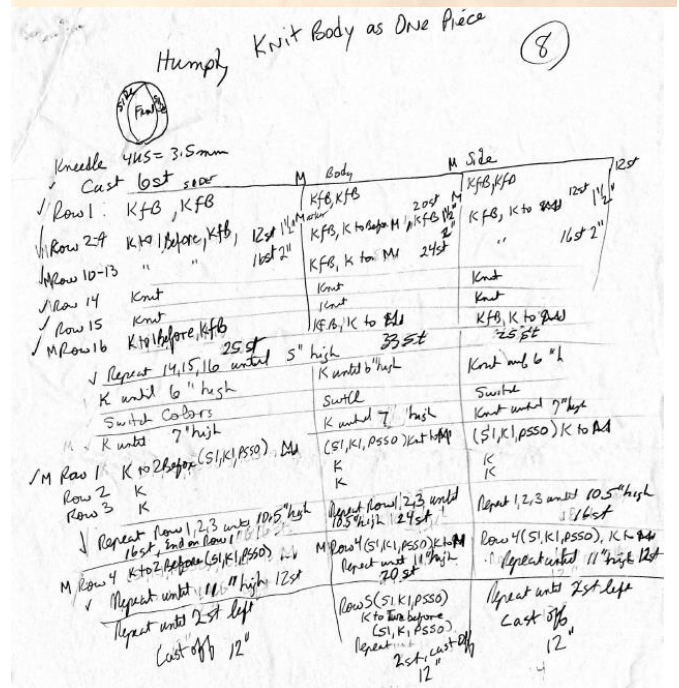 Knit Body as One Piece
Humpty
8
Side Front Side
Kneedle 4US = 3.5mm
Cast 6st SIDE M Body M Side 12st
Row 1: KfB, KfB KfB, KfB KfB, KfB
Row 2-9 K to 1 Before, KfB, 12st 1½" KfB, K to Before M, KfB 20st 1½" KfB, K to 12st 1½"
M Row 10-13 " " 16st 2" KfB, K to M 24st 2" " 16st 2"
Row 14 Knit Knit Knit
Row 15 Knit Knit Knit
M Row 16 K to 1 Before, KfB KfB, K to KfB, K to
25st 33st 25st
Repeat 14, 15, 16 until 5" high
K until 6" high K until 6" high Knit until 6"h
Switch Colors Switch Switch
K until 7" high K until 7" high Knit until 7" high
M Row 1 K to 2 Before (S1, K1, PSSO) (S1, K1, PSSO) K (S1, K1, PSSO) K to
Row 2 K K K
Row 3 K K K
Repeat Row 1, 2, 3 until 10.5" high Repeat Row 1, 2, 3 until 10.5" high 24st Repeat 1, 2, 3 until 10.5" high
16st, end on Row 1 16st
M Row 4 K to 2 Before (S1, K1, PSSO) M Row 4 (S1, K1, PSSO) K to M Row 4 (S1, K1, PSSO), K to
Repeat until 11" high 12st Repeat until 11" high 20st Repeat until 11" high 12st
Repeat until 2st left Row 5 (S1, K1, PSSO) Repeat until 2st left
K to Two before
Cast off 12" (S1, K1, PSSO) Cast off
Repeat 12"
2st, cast off
12"